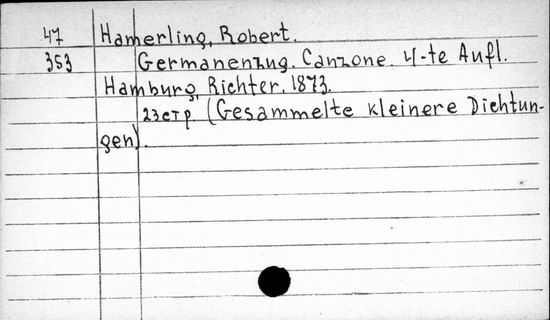 47 Hamerling, Robert.
353 Germanenzug. Canzone. 4-te Aufl.
Hamburg, Richter, 1873.
23стр. (Gesammelte kleinere Dichtun-
gen).